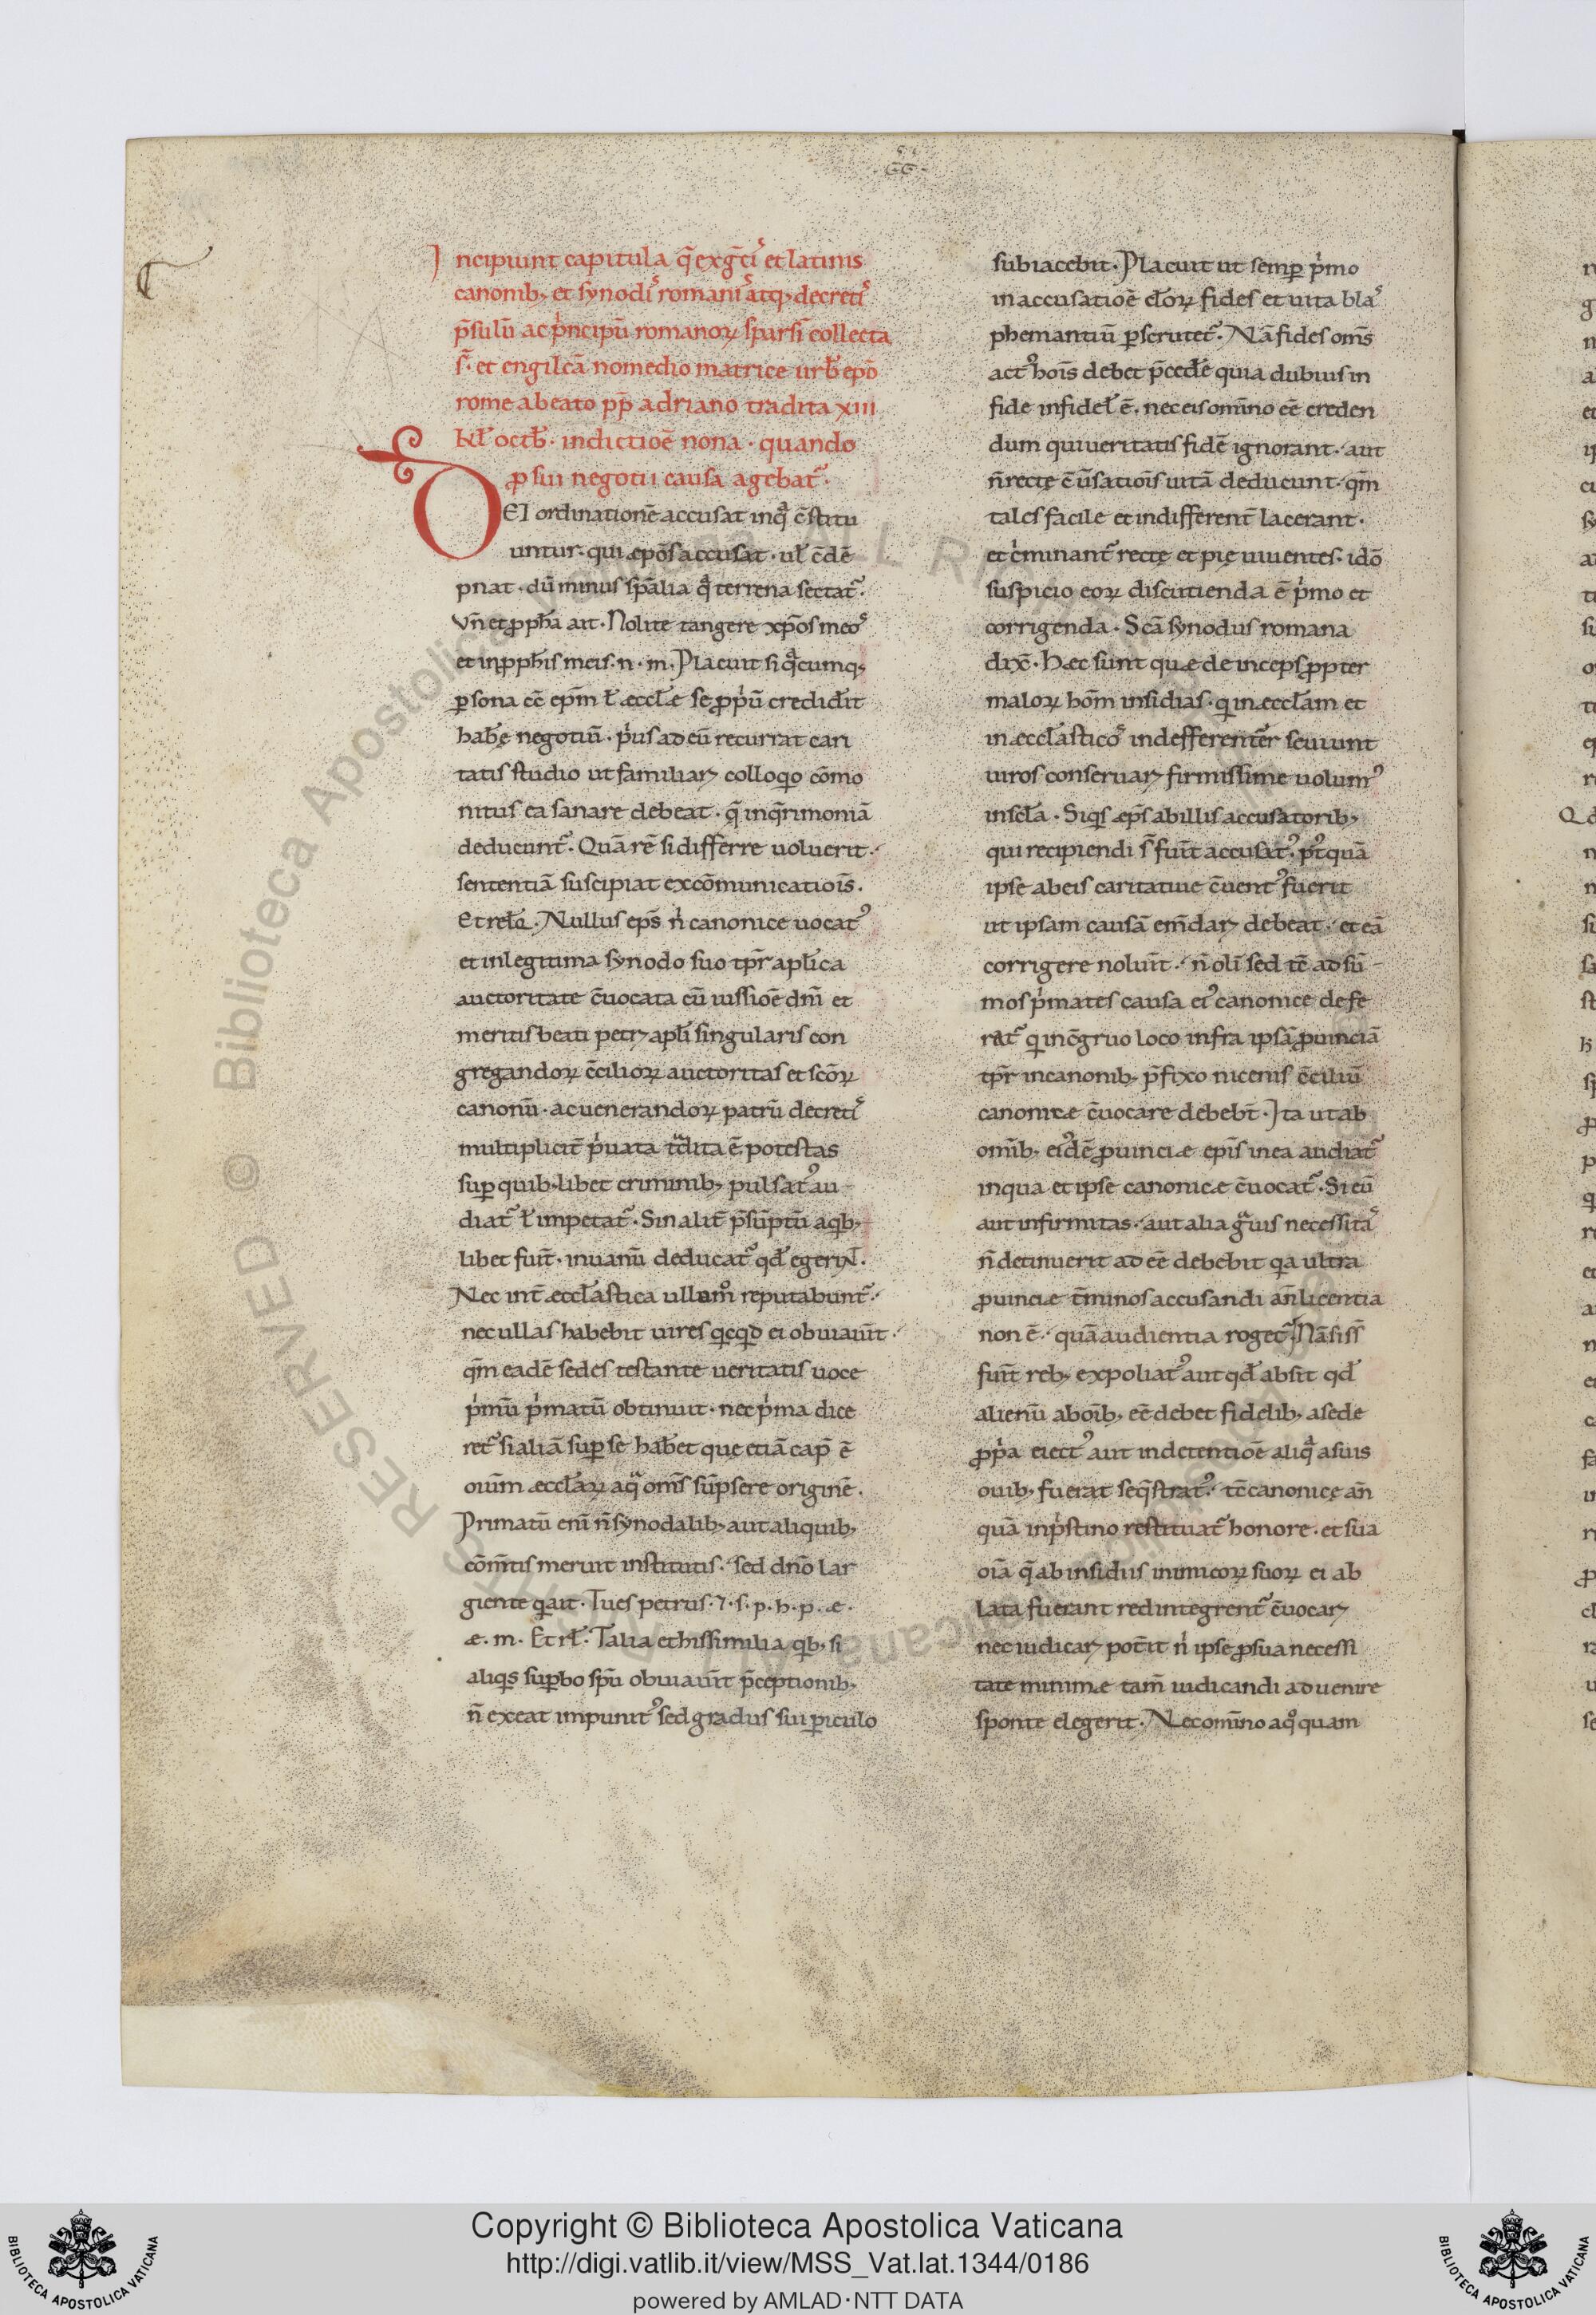 Incipiunt capitula q̄ ex gr̄cis et latinis
canonib; et synodis romanis atq; decretis
p̄sulū ac pͥncipū romanoꝝ sparsī collecta
s̄. et engilcā nomedio matrice urƀ epō
rome abeato pp̄ adriano tradita xiii
kł octƀ. indictioē nona. quando
ꝓ sui negotii causa agebat᷑.
DEI ordinationē accusat inqͣ c̄stitu
untur. qui æpōs accusat. uł c̄dē
pnat. dū minus sp̄alia qͣ terrena sectat᷑.
Vn̄ et ꝓph̄a ait. Nolite tangere xp̄os meos
et inꝓph̄is meis. n. m. Placuit si qͣcumq;
ꝑsona eē ep̄m ł æccłæ se ꝓpͥū crediđit
habę negotiū. pͥus ad eū recurrat cari
tatis studio ut familiarꝫ colloqͦ cōmo
nitus ea sanare debeat. q̄ inq̄rimoniā
deducunt᷑. Quā rē si differre uoluerit.
sententiā suscipiat excōmunicatiois̄.
Et relq̄. Nullus ep̄s nͥ canonice uocatꝰ
et inlegitima synodo suo tp̄r apłica
auctoritate c̄uocata cū iussioē dn̄i et
meritis beati petrꝫ apłi singularis con
gregandoꝝ c̄cilioꝝ auctoritas et scōꝝ
canonū. ac uenerandoꝝ patrū decretis
multiplicit̄ pͥuata tͣdita ē potestas
suꝑ quib;libet criminib; pulsatꝰ au
diat᷑ ł impetat᷑. Sin alit̄ p̄sūptū aqͥb;
libet fuit̄. inuanū deducat᷑ qđ egerīt.
Nec int̄ æccłastica ullomͦ reputabunt᷑.
nec ullas habebit uires qͥcqd ei obuiauit̄.
qm̄ eadē sedes testante ueritatis uoce
pͥmū pͥmatū obtinuit. nec pͥma dice
ret᷑ si aliā suꝑ se haƀet que etiā cap̄ ē
oium̄ æccłaꝝ aqͣ oms̄ sūpsere originē.
Primatū eni n̄ synodalib; aut aliquib;
cōmt̄is meruit institutis. sed dn̄o lar
giente qͥ ait. Tu es petrus. ⁊. s. p. h. p. æ.
æ. m. Et rł. Talia et hissimilia qͥb; si
aliqͥs suꝑbo spū obuiauit̄ p̄ceptionib;
n̄ exeat impunitꝰ sed gradus sui ꝑiculo
subiacebit. Placuit ut semꝑ pͥmo
in accusatioē cłoꝝ fides et uita blas
phemantiū ꝑscrutet᷑. Nā fides oms̄
actꝰ hois̄ debet p̄ceđe quia dubius in
fide infideł ē. nec eis omīno eē creden
dum qui ueritatis fidē ignorant. aut
n̄ rectę c̄ūsatiois̄ uitā deducunt. qm̄
tales facile et indifferent̄ lacerant.
et cͥminant᷑ rectę et pię uiuentes. idō
suspicio eoꝝ discutienda ē pͥmo et
corrigenda. Scā synodus romana
dix̄. Hæc sunt quæ deinceps ꝓpter
maloꝝ hōm insidias. qͥ in æccłam et
in æccłasticos indefferenter̄ seuiunt
uiros conseruarꝫ firmissime uolumꝰ
in scła. Siqͥs æps̄ abillis accusatorib;
qui recipiendi s̄ fuit̄ accusatꝰ. pꝰtquā
ipse abeis caritatiue c̄uentꝰ fuerit
ut ipsam causā em̄darꝫ debeat. et eā
corrigere noluit̄. n̄ oli sed tc̄ ad sū
mos pͥmates causa eiꝰ canonice defe
rat᷑ qͥ incōgruo loco infra ipsā ꝓuinciā
tp̄r incanonib; p̄fixo nicenis c̄ciliū
canonicæ c̄uocare debebt̄. Ita ut ab
omib̄; eiꝰdē ꝓuinciæ epis̄ inea audiat᷑
inqua et ipse canonicæ c̄uocat᷑. Si eū
aut infirmitas. aut alia gͣuis necessitas
n̄ detinuerit ad eē debebit qͥa ultra
ꝓuinciæ t̄minos accusandi an̄ licentia
non ē. quā audientia roget᷑. Nā si ss̄
fuit̄ reb; expoliatꝰ aut qđ absit qđ
alienū aboib̄; eē debet fidelib; asede
ꝓpͥa eiectꝰ aut indetentioē aliqͣ asuis
ouib; fuerat seq̄stratꝰ. tc̄ canonicę an̄
quā inpͥstino restituat᷑ honore. et sua
oiā q̄ ab insidiis inimicoꝝ suoꝝ ei ab
lata fuerant redintegrent᷑ c̄uocarꝫ
nec iudicarꝫ potit̄ nͥ ipse ꝓ sua necessi
tate minimæ tam̄ iudicandi aduenire
sponte elegerit. Nec omīno aqͦquam
Copyright © Biblioteca Apostolica Vaticana
http://digi.vatlib.it/view/MSS_Vat.lat.1344/0186
powered by AMLAD·NTT DATA